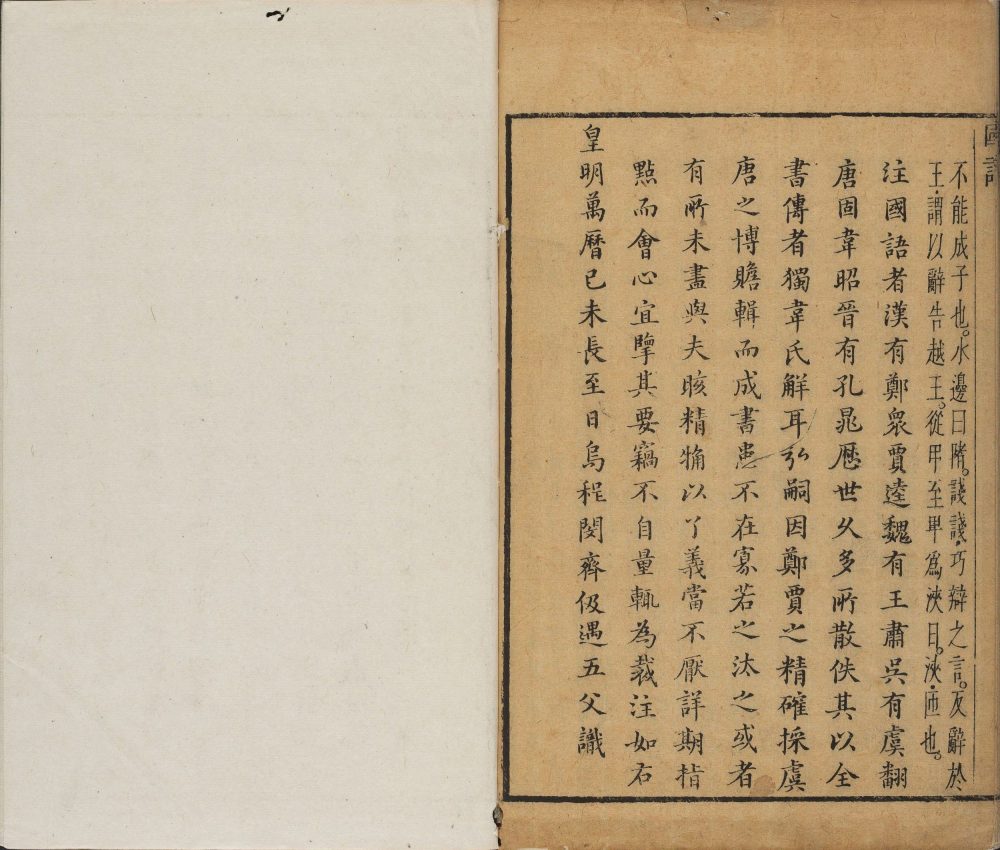 國語
不能成子也。水邊曰陼。諓諓、巧辯之言。反辭於
王、謂以辭告越王。從甲至甲爲浹日。浹、匝也。
注國語者漢有鄭衆賈逵魏有王肅吳有虞翻
唐固韋昭晉有孔晁歷世久多所散佚其以全
書傳者獨韋氏解耳弘嗣因鄭賈之精確採虞
唐之博贍輯而成書患不在寡若之汰之或者
有所未盡與夫晐精觕以了義當不厭詳期指
點而會心宜擥其要竊不自量輒為裁注如右
皇明萬曆已未長至日烏程閔齊伋遇五父識